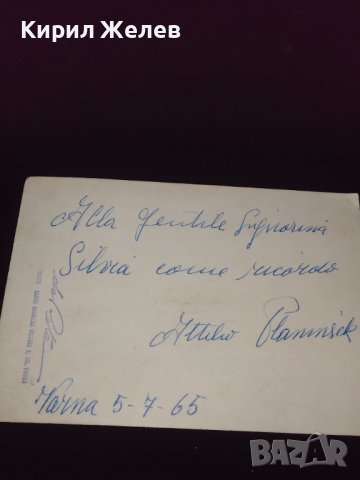 Кирил Желев
Alla gentile Signorina
Silvia come ricordo
Attilio
Varna 5-7-65
BAZAR